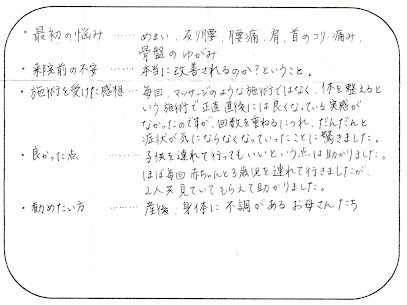 ・最初の悩み …… めまい、反り腰、腰痛、肩、首のコリ・痛み、
骨盤のゆがみ
・来院前の不安 …… 本当に改善されるのか?ということ。
・施術を受けた感想 …… 毎回、マッサージのような施術ではなく、体を整えると
いう施術で正直直後には良くなっている実感が
なかったのですが、回数を重ねるにつれ、だんだんと
症状が気にならなくなっていったことに驚きました。
・良かった点 …… 子供を連れて行ってもいいという点は助かりました。
ほぼ毎回赤ちゃんと3歳児を連れて行きましたが、
2人共見ていてもらえて助かりました。
・勧めたい方 …… 産後、身体に不調があるお母さんたち